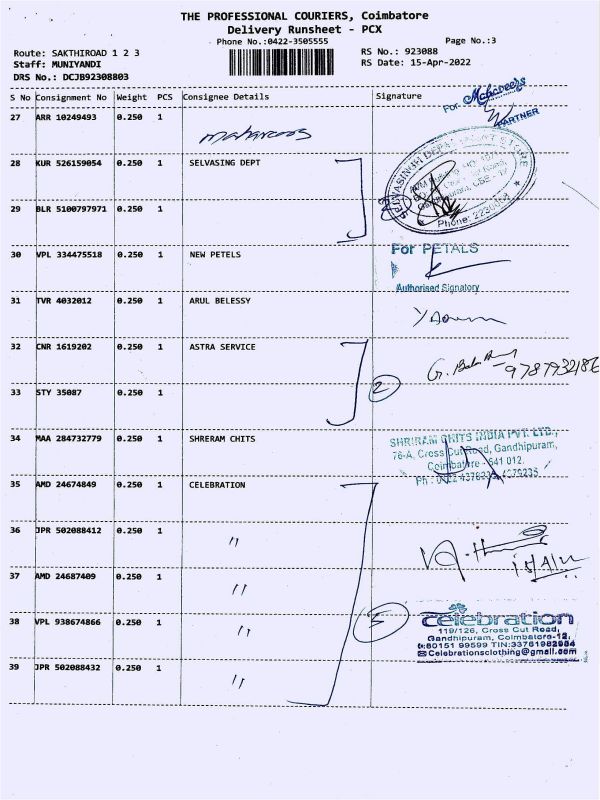 THE PROFESSIONAL COURIERS, Coimbatore
Delivery Runsheet - PCX
Phone No.:0422-3505555
Page No.:3
Route: SAKTHIROAD 1 2 3
RS No.: 923088
Staff: MUNIYANDI
RS Date: 15-Apr-2022
DRS No.: DCJB92308803
S No Consignment No Weight PCS Consignee Details Signature
For Mahaveers
PARTNER
27 ARR 10249493 0.250 1
28 KUR 526159054 0.250 1 SELVASING DEPT
SELVASINGH DEPARTMENT STORE
Phone: 2230068
29 BLR 5100797971 0.250 1
30 VPL 334475518 0.250 1 NEW PETELS
For PETALS
Authorised Signatory
31 TVR 4032012 0.250 1 ARUL BELESSY
32 CNR 1619202 0.250 1 ASTRA SERVICE
9787932186
33 STY 35087 0.250 1
2
34 MAA 284732779 0.250 1 SHRERAM CHITS
SHRIRAM CHITS INDIA PVT. LTD.,
76-A, Cross Cut Road, Gandhipuram,
Coimbatore - 641 012.
35 AMD 24674849 0.250 1 CELEBRATION
36 JPR 502088412 0.250 1 "
37 AMD 24687409 0.250 1 "
38 VPL 938674866 0.250 1 "
5
celebration
119/126, Cross Cut Road,
Gandhipuram, Coimbatore-12,
80151 99599 TIN:33761982984
Celebrationsclothing@gmail.com
39 JPR 502088432 0.250 1 "